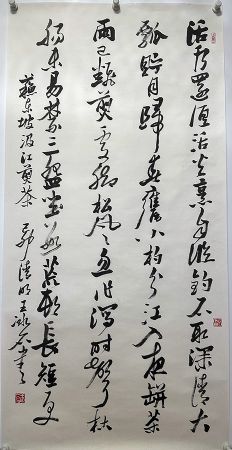 活水還須活火烹自臨釣石取深清大
瓢貯月歸春甕小杓分江入夜缾茶
雨已翻煎處腳松風忽作瀉時聲枯
腸未易禁三盌坐數荒邨長短更
蘇東坡汲江煎茶 清明王冰